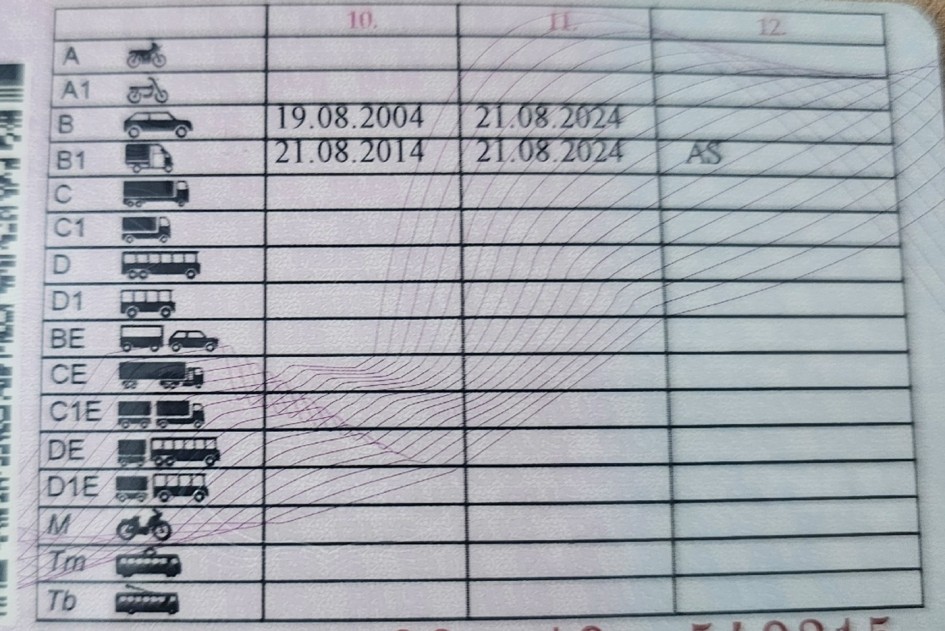 10. 11. 12.
A
A1
B 19.08.2004 21.08.2024
B1 21.08.2014 21.08.2024 AS
C
C1
D
D1
BE
CE
C1E
DE
D1E
M
Tm
Tb